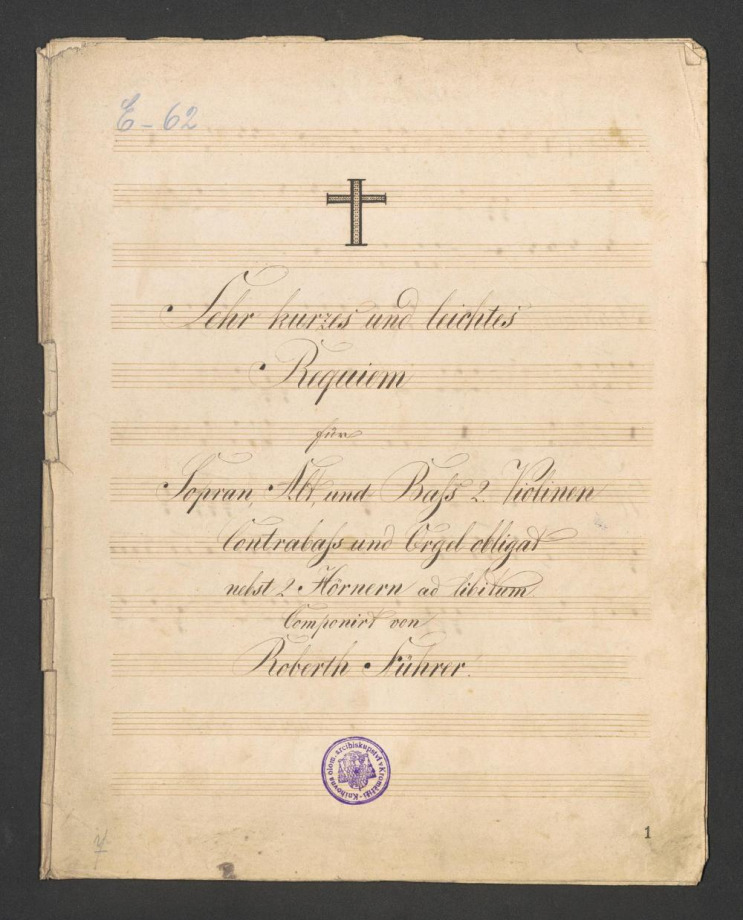 E-62
Sehr kurzes und leichtes
Requiem
für
Sopran, Alt, und Baſs 2. Violinen
Contrabaſs und Orgel obligat
nebst 2 Hörnern ad libitum.
Componirt von
Roberth Führer.
Knihovna olom. arcibiskupství v Kroměříži
1